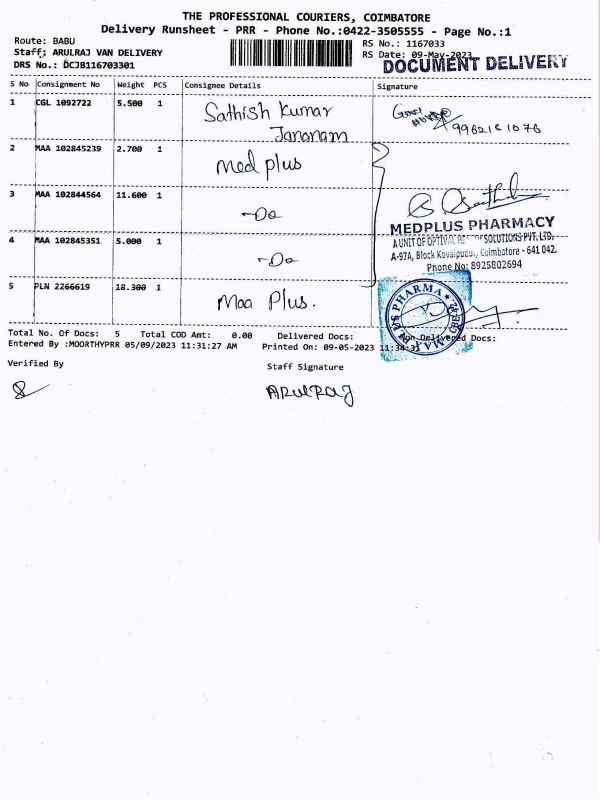 THE PROFESSIONAL COURIERS, COIMBATORE
Delivery Runsheet - PRR - Phone No.:0422-3505555 - Page No.:1
Route: BABU
RS No.: 1167033
Staff: ARULRAJ VAN DELIVERY
RS Date: 09-May-2023
DRS No.: DCJB116703301
DOCUMENT DELIVERY
S No Consignment No Weight PCS Consignee Details Signature
1 CGL 1092722 5.500 1 Sathish Kumar
Jananam
2 MAA 102845239 2.700 1 Med plus
3 MAA 102844564 11.600 1 -Do
MEDPLUS PHARMACY
4 MAA 102845351 5.000 1 -Do
A UNIT OF OPTIVAL SOLUTIONS PVT. LTD.
A-97A, Block Kovaipudur, Coimbatore - 641 042.
Phone No: 8925802694
5 PLN 2266619 18.300 1 Maa Plus.
PHARMA
Total No. Of Docs: 5 Total COD Amt: 0.00 Delivered Docs: Non Delivered Docs:
Entered By :MOORTHYPRR 05/09/2023 11:31:27 AM Printed On: 09-05-2023 11:34:31
Verified By
Staff Signature
ARULRAJ